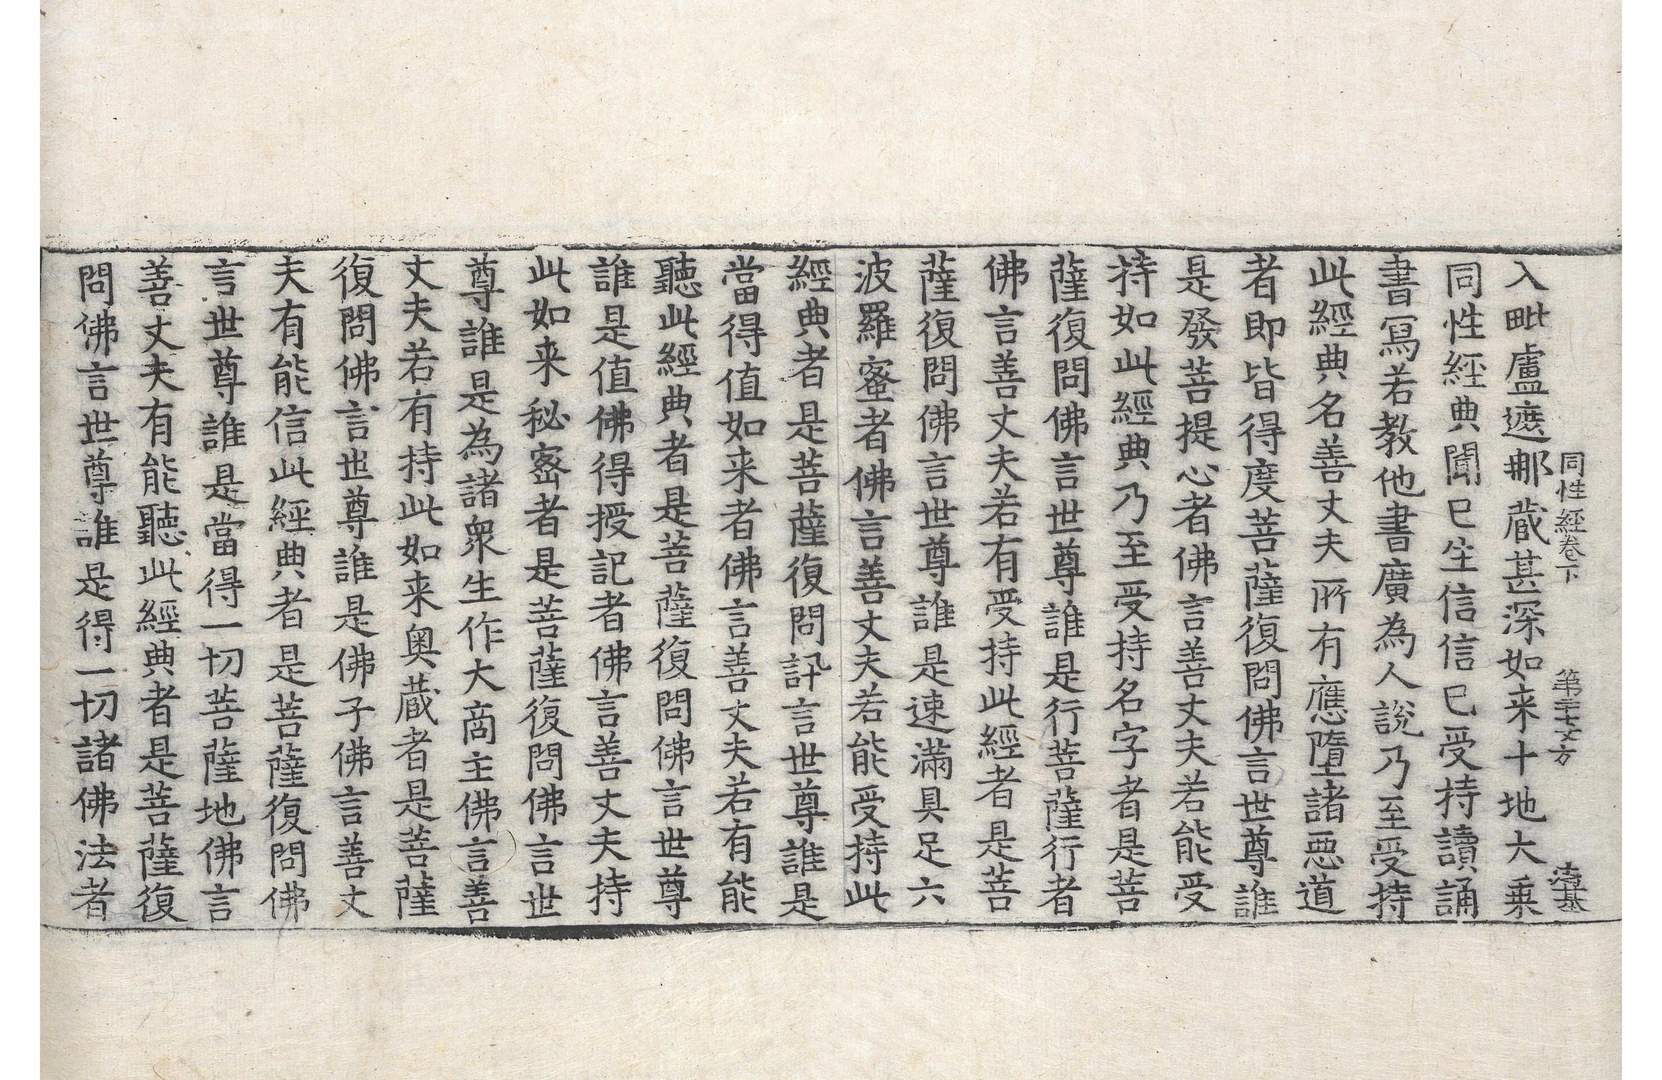 同性經卷下　第二十七丈　方
入毗盧遮那蔵甚深如来十地大乗
同性經典聞已生信信已受持讀誦
書寫若教他書廣為人說乃至受持
此經典名善丈夫所有應墮諸惡道
者即皆得度菩薩復問佛言世尊誰
是發菩提心者佛言善丈夫若能受
持如此經典乃至受持名字者是菩
薩復問佛言世尊誰是行菩薩行者
佛言善丈夫若有受持此經者是菩
薩復問佛言世尊誰是速滿具足六
波羅蜜者佛言善丈夫若能受持此
經典者是菩薩復問訊言世尊誰是
當得值如来者佛言善丈夫若有能
聽此經典者是菩薩復問佛言世尊
誰是值佛得授記者佛言善丈夫持
此如来秘密者是菩薩復問佛言世
尊誰是為諸衆生作大商主佛言善
丈夫若有持此如来奥蔵者是菩薩
復問佛言世尊誰是佛子佛言善丈
夫有能信此經典者是菩薩復問佛
言世尊誰是當得一切菩薩地佛言
善丈夫有能聽此經典者是菩薩復
問佛言世尊誰是得一切諸佛法者